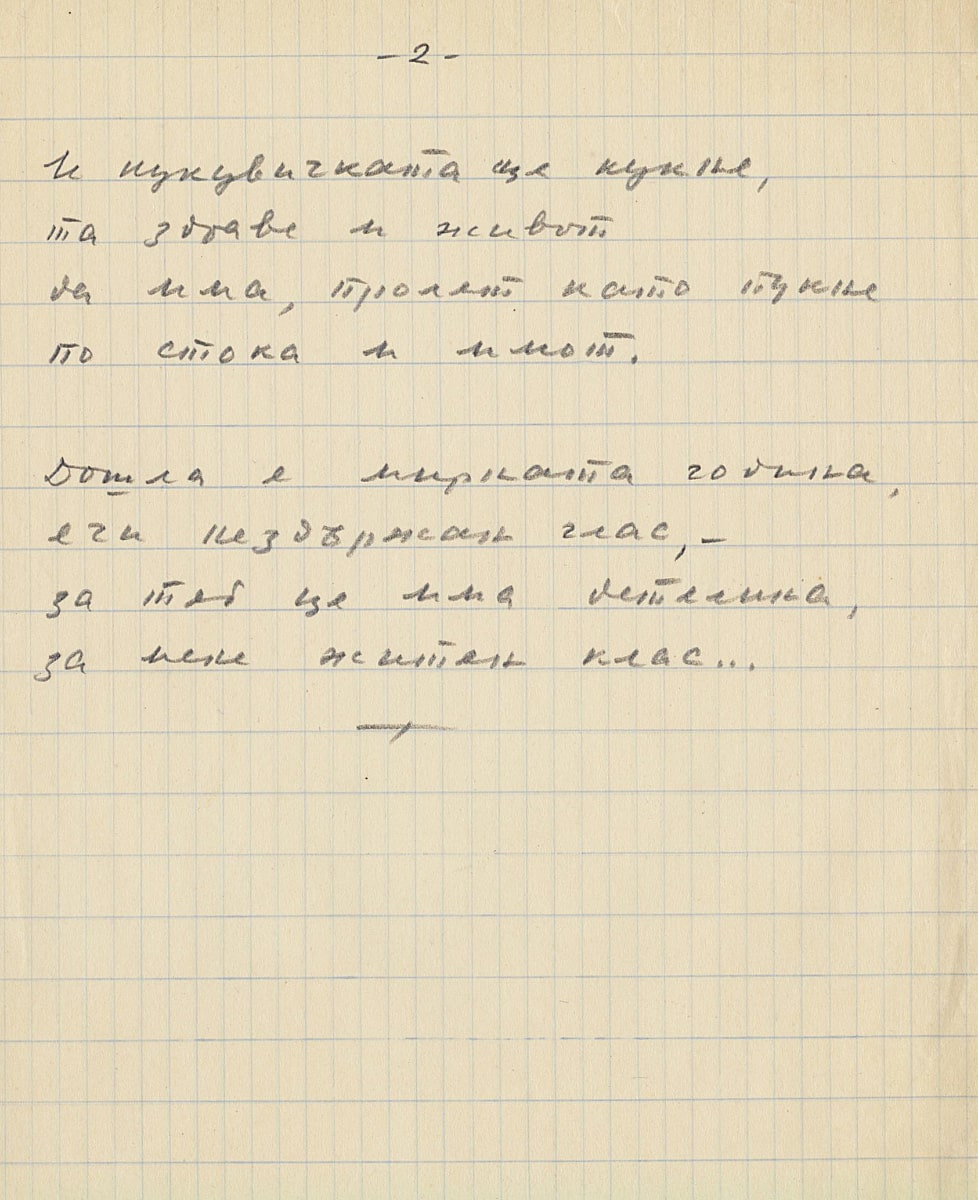 - 2 -
И кукувичката ще кукне,
та здраве и живот
да има, пролет като пукне
по стока и имот.
Дошла е мирната година,
ечи нездържан глас, -
за теб ще има детелина,
за мене житен клас...